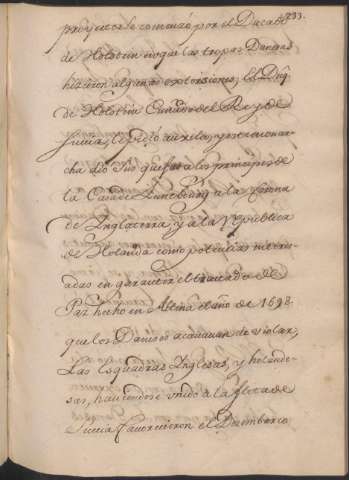 233.
proyecto se comenzó por el Ducado
de Holstein en que las tropas Danesas
hizieron algunas extorsiones, El Duq.
de Holstein Cuñado del Rey de
Suecia, le pidio auxilio, y
cha dio sus quejas a los principes de
la Casa de Lunebourg a la Corona
de Inglaterra, y a la Republica
de Holanda como potencias interes
adas en garantir el tractado de
Paz hecho en Altena el año de 1698
que los Daneses acavavan de violar,
Las esquadras Inglesas, y holande-
sas, haviendose unido a la flota de
Suecia favorecieron el Desembarco